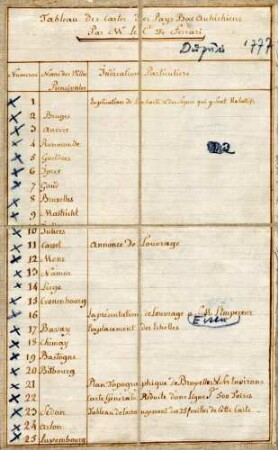 Tableau des Cartes des Pays Bas Autrichiens
Par Mr le Cte De Ferrari
Depuis 1777
Numeros Noms des Villes Principales Indication Particuliere
1 Explication de la Carte et des signes qui y sont Relatifs
2 Bruges
3 Anvers
4 Ruremonde
5 Gueldres
6 Ypres
7 Gand
8 Bruxelles
9 Mastricht
10 Juliers
11 Cassel Annonce de L'ouvrage
12 Mons
13 Namur
14 Liege
15 Cronenbourg
16 La présentation de l'ouvrage a L'Empereur
17 Bavay Emplacement des Echelles
18 Chimay
19 Bastogne
20 Bitbourg
21 Plan Topographique de Bruxelles et ses Environs
22 Carte Generale Reduite d'une ligne p. 500 Toises
23 Sedan Tableau de l'arrangement des 25 feuilles de cette Carte
24 Arlon
25 Luxembourg